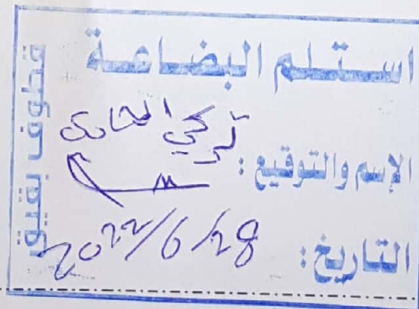 استلم البضاعة
الإسم والتوقيع : تركي
التاريخ : 2022/6/28
قطوف بقيق